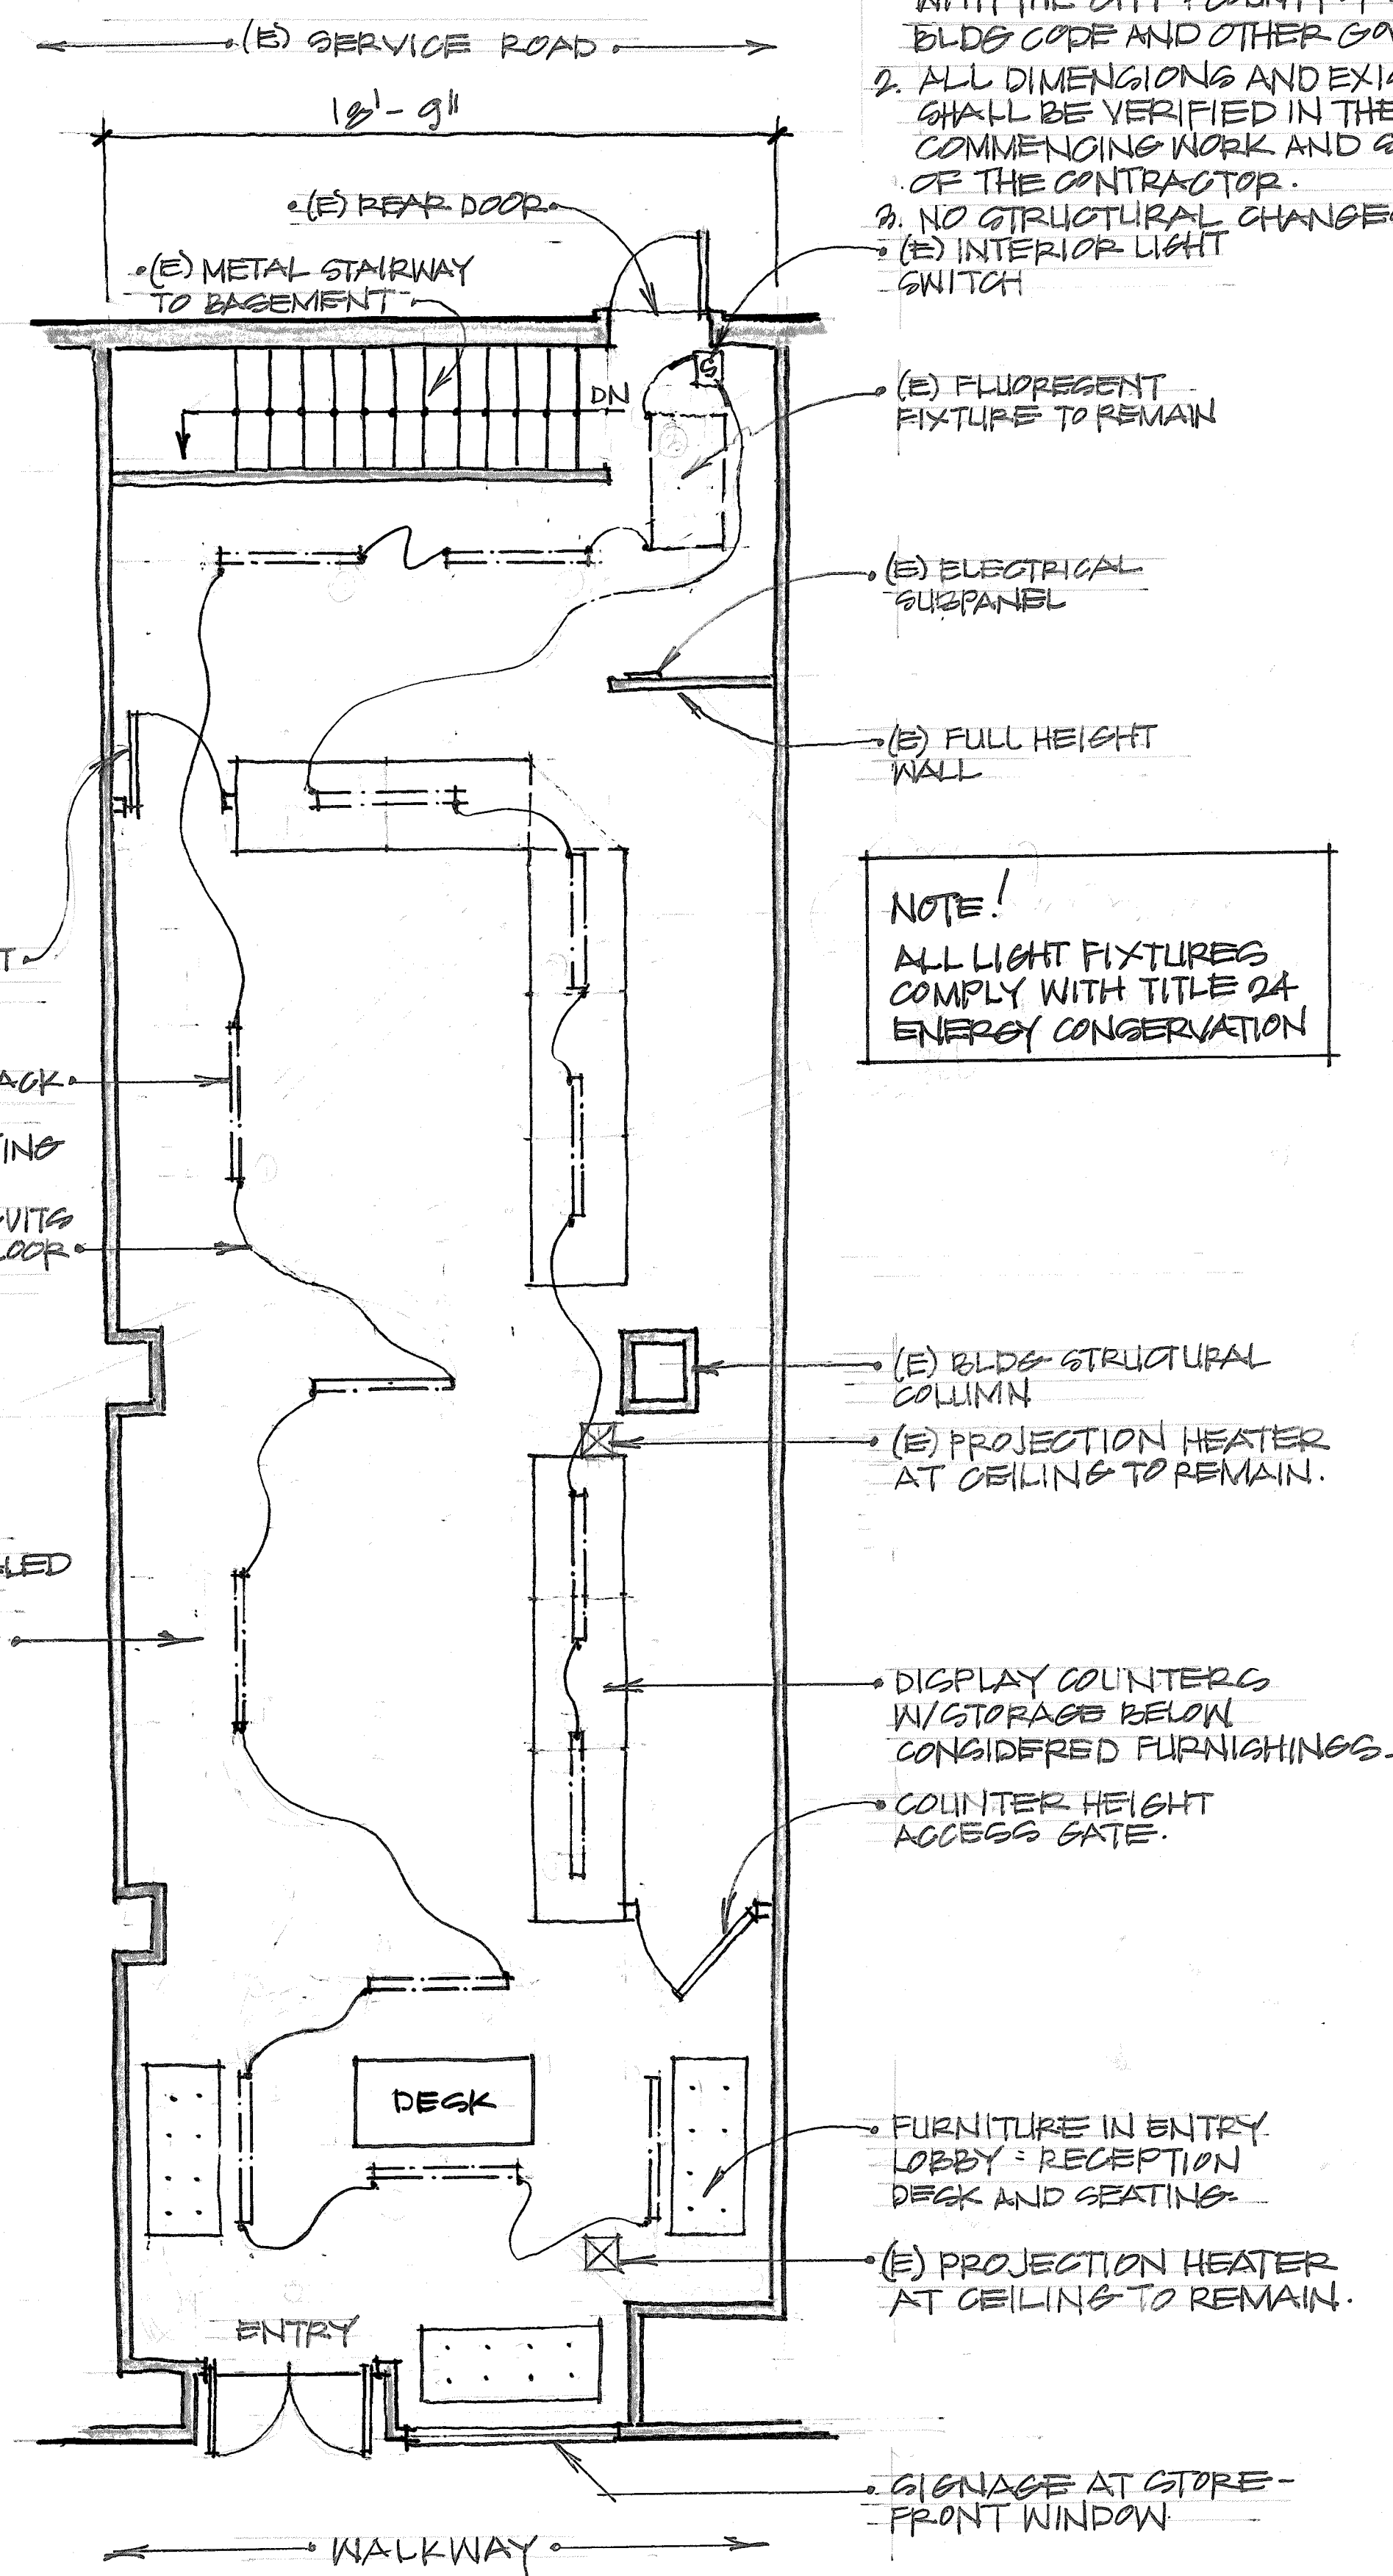 (E) SERVICE ROAD
18'-9"
BLDG CODE AND OTHER
2. ALL DIMENSIONS AND
SHALL BE VERIFIED IN THE
COMMENCING WORK AND
OF THE CONTRACTOR.
3. NO STRUCTURAL
(E) REAR DOOR
(E) METAL STAIRWAY
TO BASEMENT
(E) INTERIOR LIGHT
SWITCH
S
DN
(E) FLUORESENT
FIXTURE TO REMAIN
(E) ELECTRICAL
SUBPANEL
(E) FULL HEIGHT
WALL
NOTE!
ALL LIGHT FIXTURES
COMPLY WITH TITLE 24
ENERGY CONSERVATION
(E) BLDG STRUCTURAL
COLUMN
(E) PROJECTION HEATER
AT CEILING TO REMAIN.
DISPLAY COUNTERS
W/STORAGE BELOW
CONSIDERED FURNISHINGS.
COUNTER HEIGHT
ACCESS GATE.
DESK
FURNITURE IN ENTRY
LOBBY = RECEPTION
DESK AND SEATING.
(E) PROJECTION HEATER
AT CEILING TO REMAIN.
ENTRY
SIGNAGE AT STORE-
FRONT WINDOW
WALKWAY